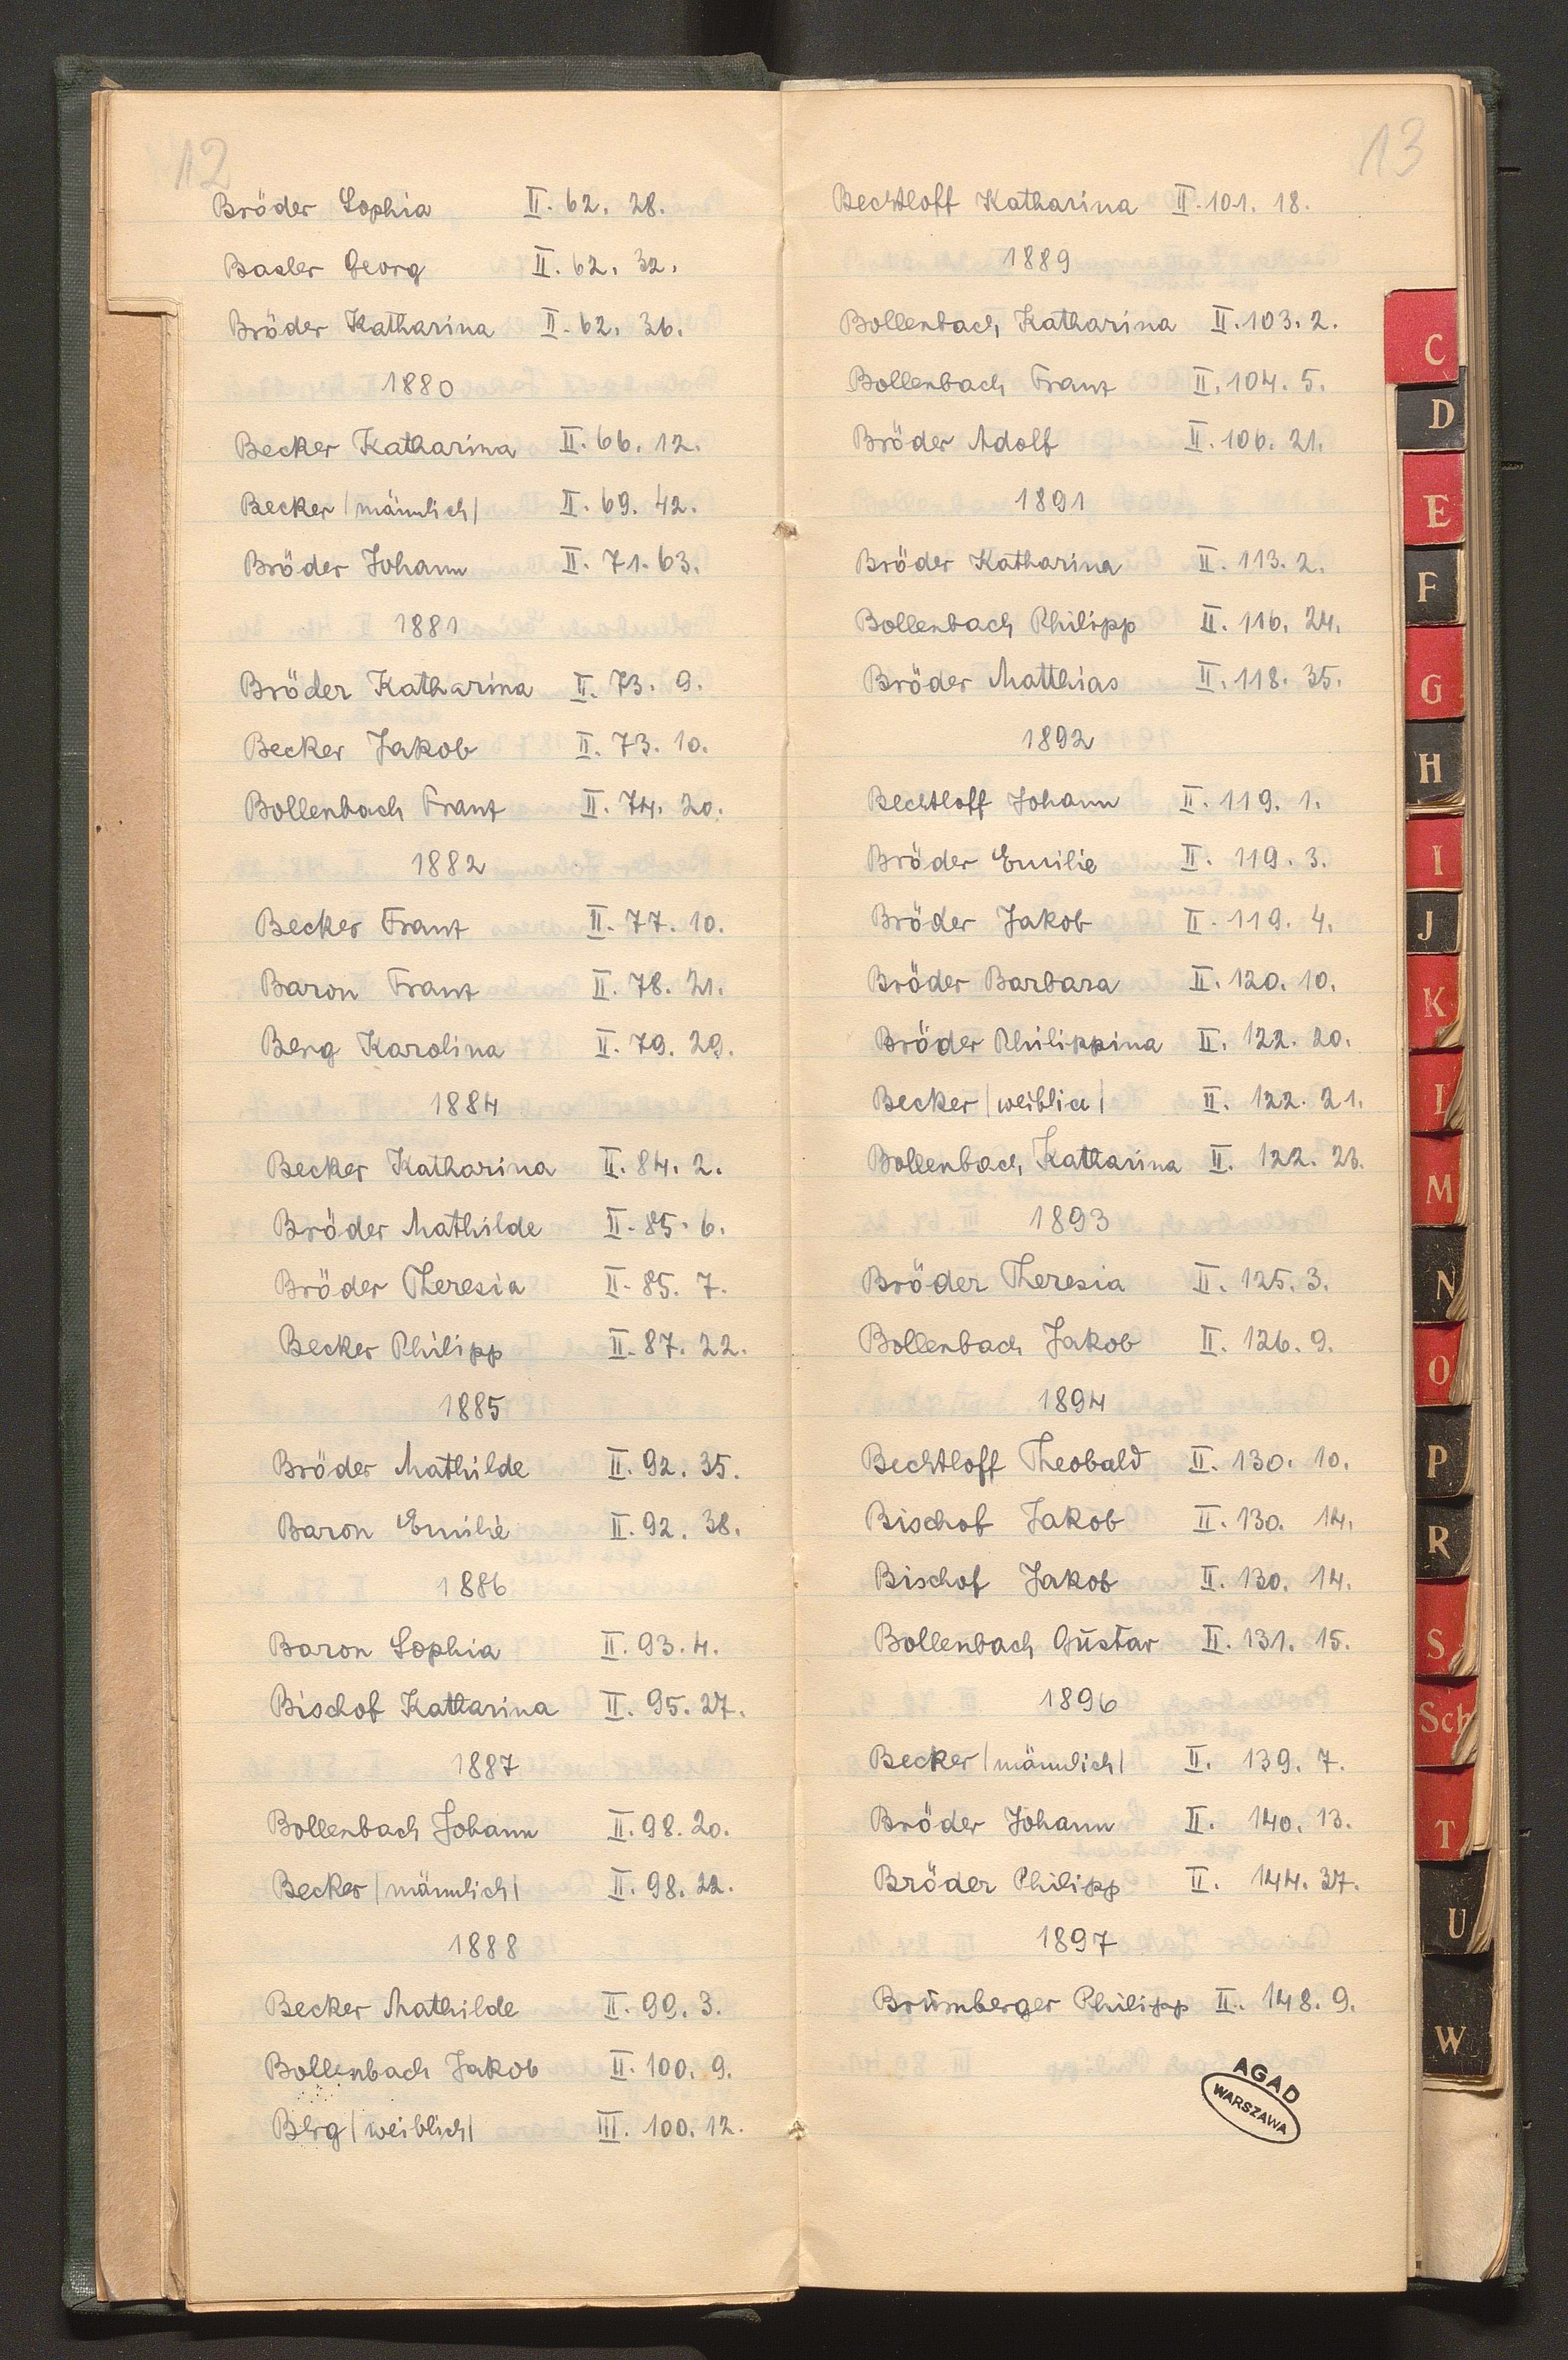 12
Bröder Sophia II. 62. 28.
Basler Georg II. 62. 32.
Bröder Katharina II. 62. 36.
1880
Becker Katharina II. 66. 12.
Becker |männlich| II. 69. 42.
Bröder Johann II. 71. 63.
1881
Bröder Katharina II. 73. 9.
Becker Jakob II. 73. 10.
Bollenbach Franz II. 74. 20.
1882
Becker Franz II. 77. 10.
Baron Franz II. 78. 21.
Berg Karolina II. 79. 29.
1884
Becker Katharina II. 84. 2.
Bröder Mathilde II. 85. 6.
Bröder Theresia II. 85. 7.
Becker Philipp II. 87. 22.
1885
Bröder Mathilde II. 92. 35.
Baron Emilie II. 92. 38.
1886
Baron Sophia II. 93. 4.
Bischof Katharina II. 95. 27.
1887
Bollenbach Johann II. 98. 20.
Becker |männlich| II. 98. 22.
1888
Becker Mathilde II. 99. 3.
Bollenbach Jakob II. 100. 9.
Berg |weiblich| III. 100. 12.
13
Bechtloff Katharina II. 101. 18.
1889
Bollenbach Katharina II. 103. 2.
Bollenbach Franz II. 104. 5.
Bröder Adolf II. 106. 21.
1891
Bröder Katharina II. 113. 2.
Bollenbach Philipp II. 116. 24.
Bröder Matthias II. 118. 35.
1892
Bechtloff Johann II. 119. 1.
Bröder Emilie II. 119. 3.
Bröder Jakob II. 119. 4.
Bröder Barbara II. 120. 10.
Bröder Philippina II. 122. 20.
Becker |weiblich| II. 122. 21.
Bollenbach Katharina II. 122. 23.
1893
Bröder Theresia II. 125. 3.
Bollenbach Jakob II. 126. 9.
1894
Bechtloff Theobald II. 130. 10.
Bischof Jakob II. 130. 14.
Bischof Jakob II. 130. 14.
Bollenbach Gustav II. 131. 15.
1896
Becker |männlich| II. 139. 7.
Bröder Johann II. 140. 13.
Bröder Philipp II. 144. 37.
1897
Brümberger Philipp II. 148. 9.
AGAD
WARSZAWA
C
D
E
F
G
H
I
J
K
L
M
N
O
P
R
S
Sch
T
U
W